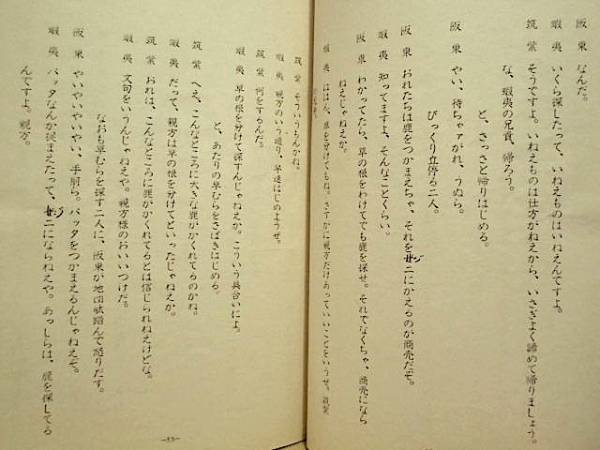 阪東 なんだ。
蝦夷 いくら探したって、いねえものはいねえんですよ。
筑紫 そうですよ。いねえものは仕方がねえから、いさぎよく諦めて帰りましょう。
な、蝦夷の兄貴、帰ろう。
と、さっさと帰りはじめる。
阪東 やい、待ちゃアがれ、うぬら。
びっくり立停る二人。
阪東 おれたちは鹿をつかまえちゃ、それを
にかえるのが商売だぞ。
蝦夷 知ってますよ、そんなことくらい。
阪東 わかってたら、草の根をわけてでも鹿を探せ。それでなくちゃ、商売になら
ねえじゃねえか。
蝦夷 ははん、草を分けてもね。さすがに親方だけあっていいことをいうぜ。筑紫
筑紫 そういうもんかね。
蝦夷 親方のいう通り、早速はじめようぜ。
筑紫 何をするんだ。
蝦夷 草の根を分けて探すんじゃねえか。こういう具合いによ。
と、あたりの草むらをさばきはじめる。
筑紫 へえ、こんなところに大きな鹿がかくれてるのかね。
蝦夷 だって、親方は草の根を分けてといったじゃねえか。
筑紫 おれは、こんなところに鹿がかくれてるとは信じられねえけどな。
蝦夷 文句をいうんじゃねえや。親方様のおいいつけだ。
なおも草むらを探す二人に、阪東が地団駄踏んで怒りだす。
阪東 やいやいやいやい、手前ら。バッタをつかまえるんじゃねえぞ。
蝦夷 バッタなんか捉まえたって、
にならねえや。あっしらは、鹿を探してる
んですよ。親方。